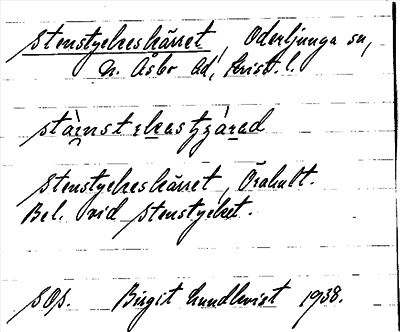 Stenstyckeskärret, Oderljunga sn,
N. Åsbo hd, Krist. l.
Stenstyckeskärret, Örahult.
Bel. vid Stenstycket.
SOA. Birgit Lundkvist 1938.